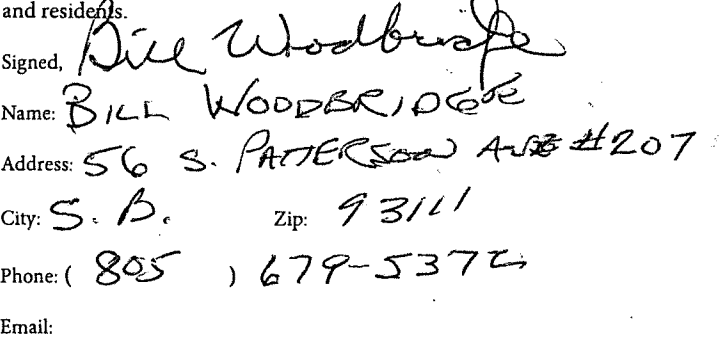 and residents.
Signed, Bill Woodbridge
Name: BILL WOODBRIDGE
Address: 56 S. PATTERSON AVE #207
City: S. B. Zip: 93111
Phone: ( 805 ) 679-5372
Email: